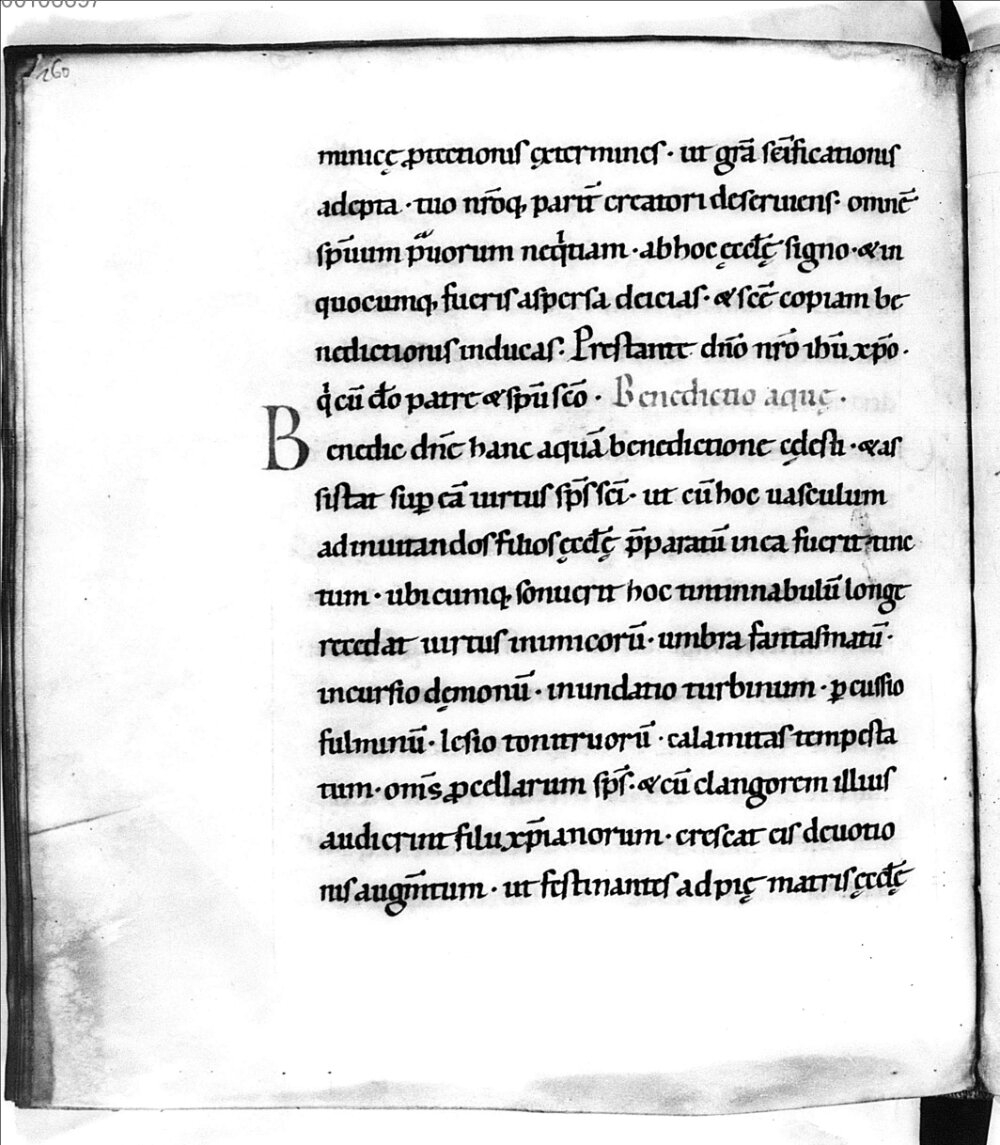 260
minicę ꝓtectionis ęxtermines · ut grã sc̃ificationis
adepta · tuo nr̃oq; parit̃ creatori deseruiens · omnẽ
sp̃uum prauorum neqͥtiam · ab hoc ęccl̃ę signo · & in
quocumq; fueris aspersa deicias · & sc̃ẽ copiam be
nedictionis inducas. Prestante dñо nr̃o ihũ xp̃o ·
qͥ cũ dõ patre & sp̃u sc̃o · Benedictio aquę ·
Benedic dñe hanc aquã benedictione cęlesti · & as
sistat suꝑ eã uirtus sp̃s sc̃i · ut cũ hoc uasculum
ad inuitandos filios ęccl̃ę p̃paratũ in ea fuerit tinc
tum · ubicumq; sonuerit hoc tintinnabulũ longe
recedat uirtus inimicorũ · umbra fantasmatũ ·
incursio dęmonũ · inundatio turbinum · ꝑcussio
fulminũ · lesio tonitruorũ · calamitas tempesta
tum · om̃s ꝓcellarum sp̃s · & cũ clangorem illius
audierint filii xp̃ianorum · crescat eis deuotio
nis augm̃tum · ut festinantes ad pię matris ęccl̃ę